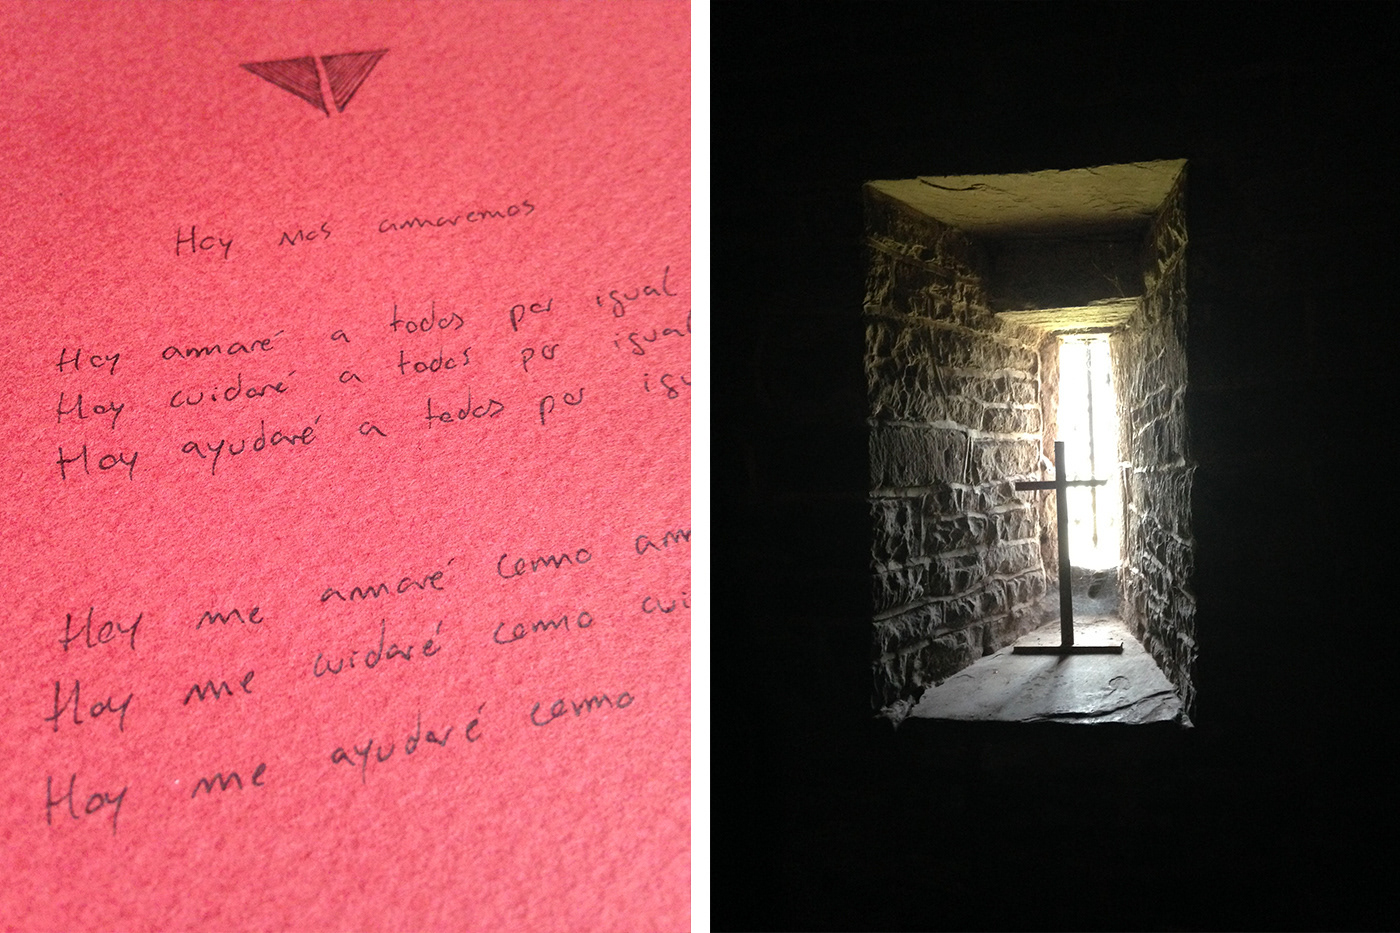 Hoy nos amaremos
Hoy amaré a todos por igual
Hoy cuidaré a todos por igual
Hoy ayudaré a todos por igu
Hoy me amaré como am
Hoy me cuidaré como cui
Hoy me ayudaré como